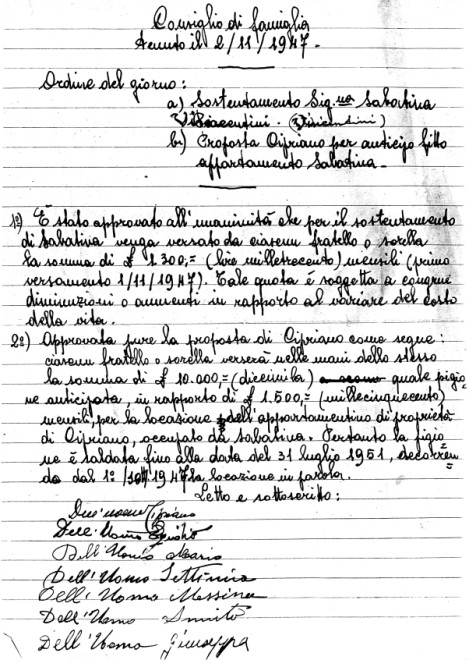 Consiglio di Famiglia
tenuto il 2/11/1947.
Ordine del giorno:
a) Sostentamento Sig.na Sabatina
(Vincentini)
b) Proposta Cipriano per anticipo fitto
appartamento Sabatina.
1º) È stato approvato all'unanimità che per il sostentamento
di Sabatina venga versato da ciascun fratello o sorella
la somma di £ 1.300,= (lire milletrecento) mensili (primo
versamento 1/11/1947). Tale quota è soggetta a congrue
diminuzioni o aumenti in rapporto al variare del costo
della vita.
2º) Approvata pure la proposta di Cipriano come segue:
ciascun fratello o sorella verserà nelle mani dello stesso
la somma di £ 10.000,= (diecimila) quale pigio
ne anticipata, in rapporto di £ 1.500,= (millecinquecento)
mensili, per la locazione dell'appartamentino di proprietà
di Cipriano, occupato da Sabatina. Pertanto la pigio
ne è saldata fino alla data del 31 luglio 1951, decorren
do dal 1º 1947 la locazione in parola.
Letto e sottoscritto:
Dell'Uomo Cipriano
Dell'Uomo
Dell'Uomo Mario
Dell'Uomo Settimia
Dell'Uomo Messina
Dell'Uomo
Dell'Uomo Giuseppa